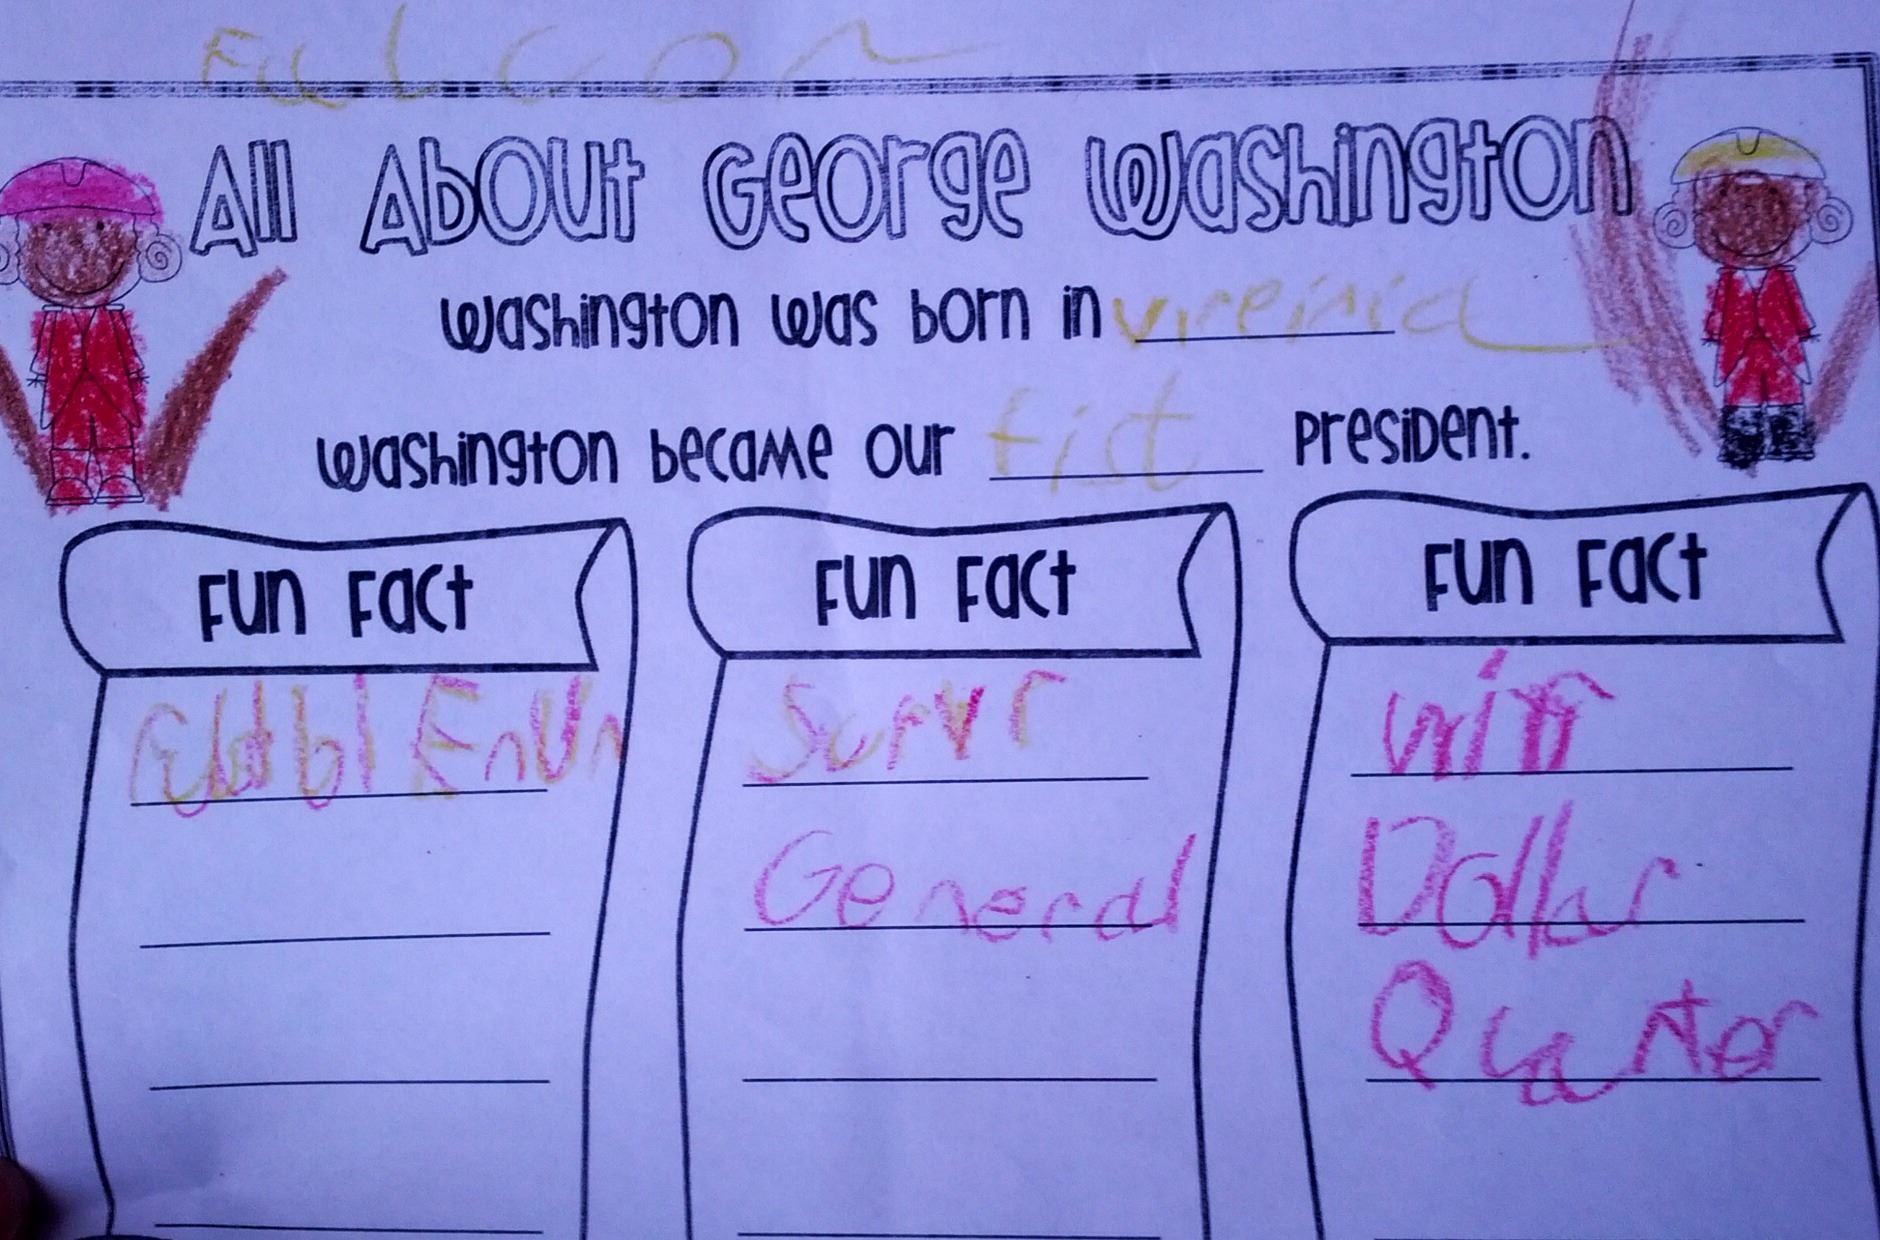 Falcon
All About George Washington
Washington was born in vireinia
Washington became our fist President.
Fun Fact
Fun Fact
Fun Fact
Survr
General
Dollar
Quarter